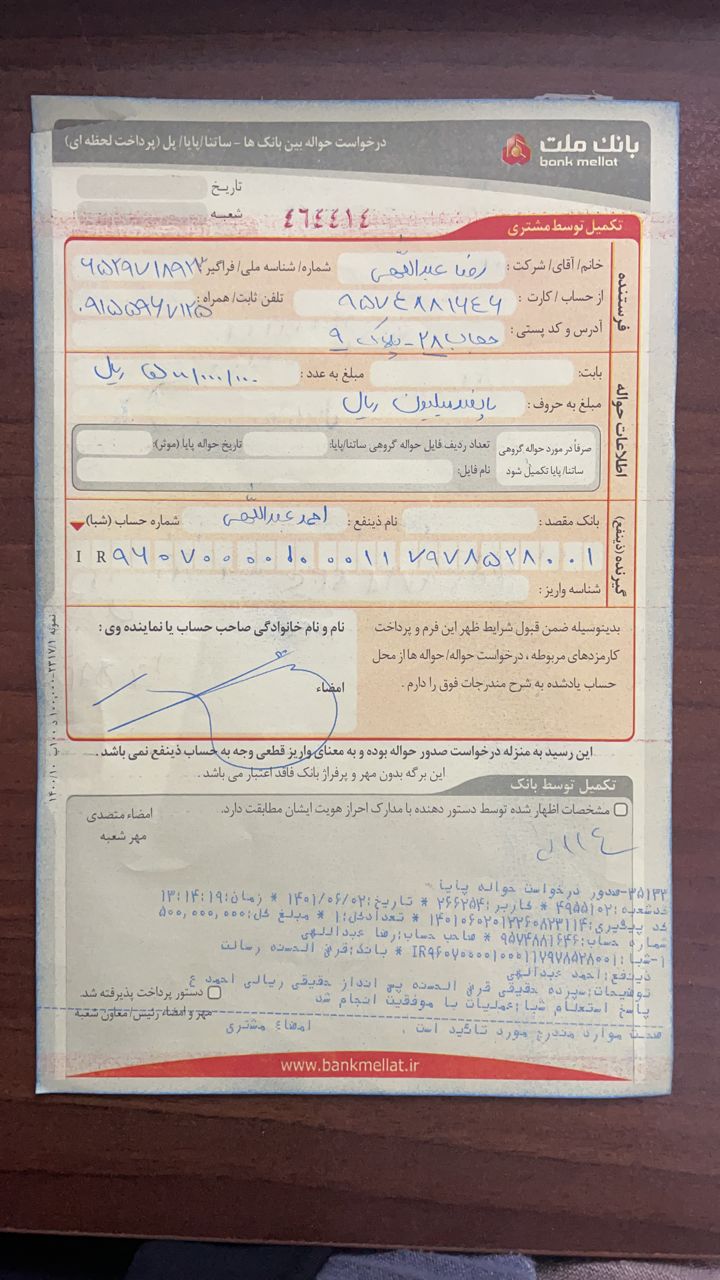 بانک ملت
bank mellat
درخواست حواله بین بانک ها - ساتنا/پایا/ پل (پرداخت لحظه ای)
تاریخ
شعبه
٤٦٤٤١٤
تکمیل توسط مشتری
فرستنده
خانم/ آقای/ شرکت : رضا عبداللهی شماره/ شناسه ملی/ فراگیر:
از حساب / کارت : ۹۵۷٤۸۸۱٦٤٦ تلفن ثابت/ همراه : ۰۹۱۵۵۹۶۷۱۲۵
آدرس و کد پستی : ۲۸ - پلاک ۹
اطلاعات حواله
بابت: مبلغ به عدد : ریال
مبلغ به حروف : پانصد میلیون ریال
صرفاً در مورد حواله گروهی ساتنا/پایا تکمیل شود
تعداد ردیف فایل حواله گروهی ساتنا/پایا: تاریخ حواله پایا (موثر):
نام فایل:
گیرنده (ذینفع)
بانک مقصد : نام ذینفع : احمد عبداللهی شماره حساب (شبا)
I R ۹۶۰۷۰۰۰۰۱۰۰۰۱۱۷۹۷۸۵۲۸۰۰۱
شناسه واریز :
بدینوسیله ضمن قبول شرایط ظهر این فرم و پرداخت
کارمزدهای مربوطه ، درخواست حواله/ حواله ها از محل
حساب یادشده به شرح مندرجات فوق را دارم .
نام و نام خانوادگی صاحب حساب یا نماینده وی :
امضاء
این رسید به منزله درخواست صدور حواله بوده و به معنای واریز قطعی وجه به حساب ذینفع نمی باشد .
این برگه بدون مهر و پرفراژ بانک فاقد اعتبار می باشد .
تکمیل توسط بانک
مشخصات اظهار شده توسط دستور دهنده با مدارک احراز هویت ایشان مطابقت دارد.
امضاء متصدی
مهر شعبه
۳۵۱۳۲-صدور درخواست حواله پایا
کدشعبه:۴۹۵۵۱۰۲ * کاربر:۲۶۶۲۵۴ * تاریخ:۱۴۰۱/۰۶/۰۲ * زمان:۱۳:۱۴:۱۹
کد پیگیری:۱۴۰۱۰۶۰۲۰۱۲۲۶۰۸۲۳۱۱۴ * تعدادکل:۱ * مبلغ کل:۵۰۰,۰۰۰,۰۰۰
شماره حساب:۹۵۷۴۸۸۱۶۴۶ * صاحب حساب:رضا عبدالهی
۱-شبا:IR۹۶۰۷۰۰۰۰۱۰۰۰۱۱۷۹۷۸۵۲۸۰۰۱ * بانک:قرض الحسنه رسالت
ذینفع:احمد عبدالهی
توضیحات:سپرده حقیقی قرض الحسنه پس انداز حقیقی ریالی احمد ع
پاسخ استعلام شبا:عملیات با موفقین انجام شد
دستور پرداخت پذیرفته شد.
مهر و امضاء رئیس/ معاون شعبه
صحت موارد مندرج مورد تائید است . امضاء مشتری
www.bankmellat.ir